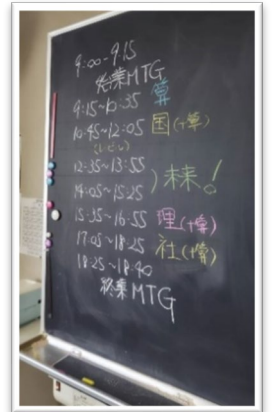 9:00~9:15
始業MTG
9:15~10:35 算
10:45~12:05 国(+算)
12:35~13:55
14:05~15:25 ) 未来!
15:35~16:55 理(+算)
17:05~18:25 社(+算)
18:25~18:40
終業MTG